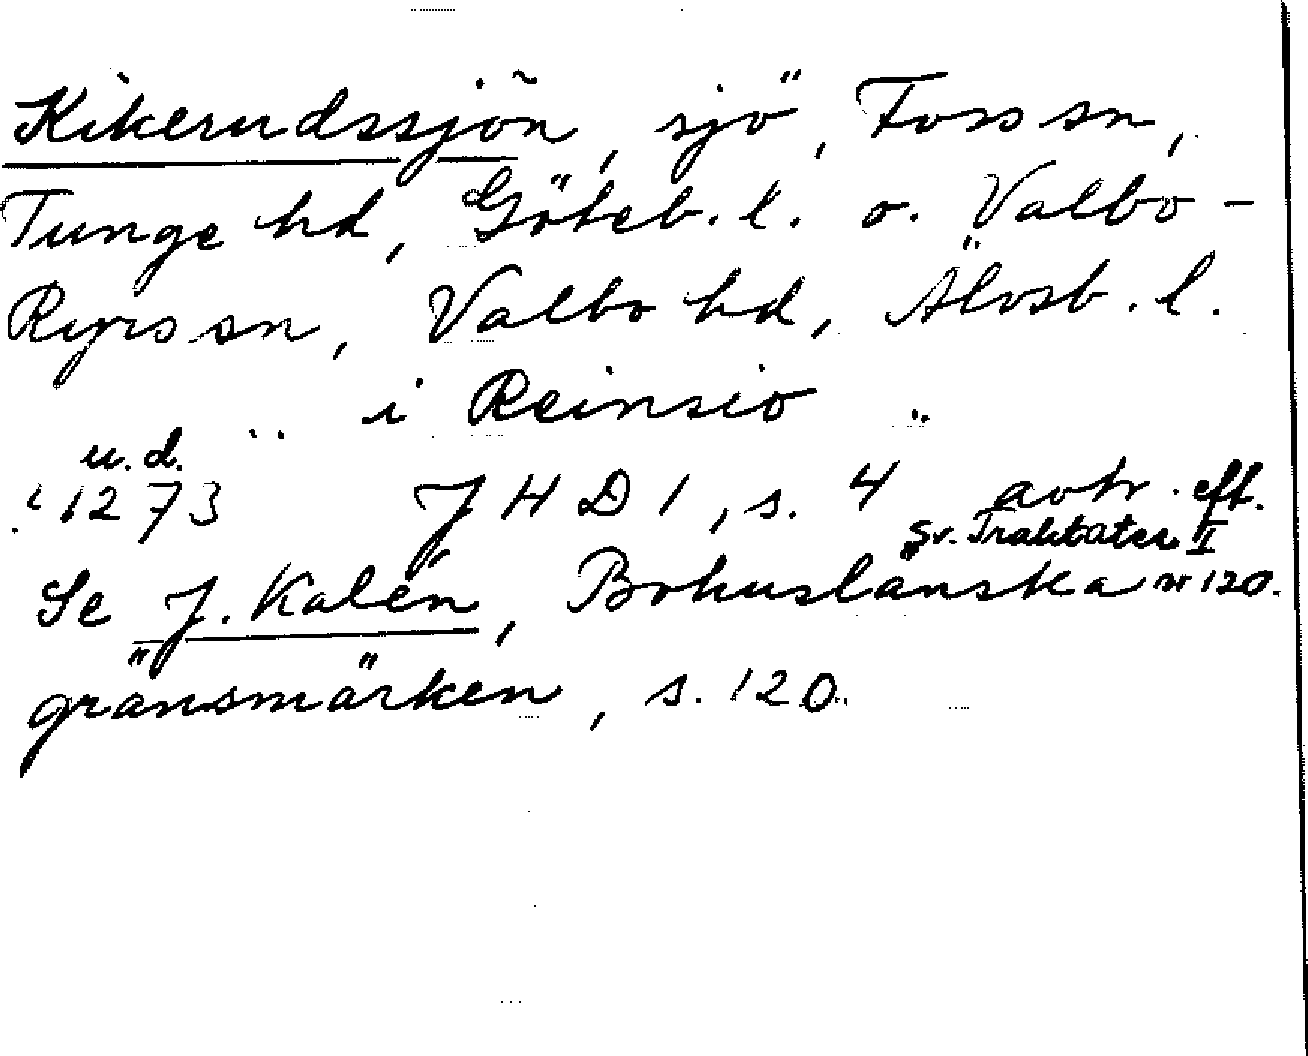 Kikerudssjön, sjö, Foss sn,
Tunge hd, Göteb. l. o. Valbo-
Ryrs sn, Valbo hd, Älvsb. l.
" i Reinsio "
u.d.
1273 JHD 1, s. 4 avtr. eft.
Sv. Traktater I
Se J. Kalén, Bohuslänska nr 120.
gränsmärken, s. 120.